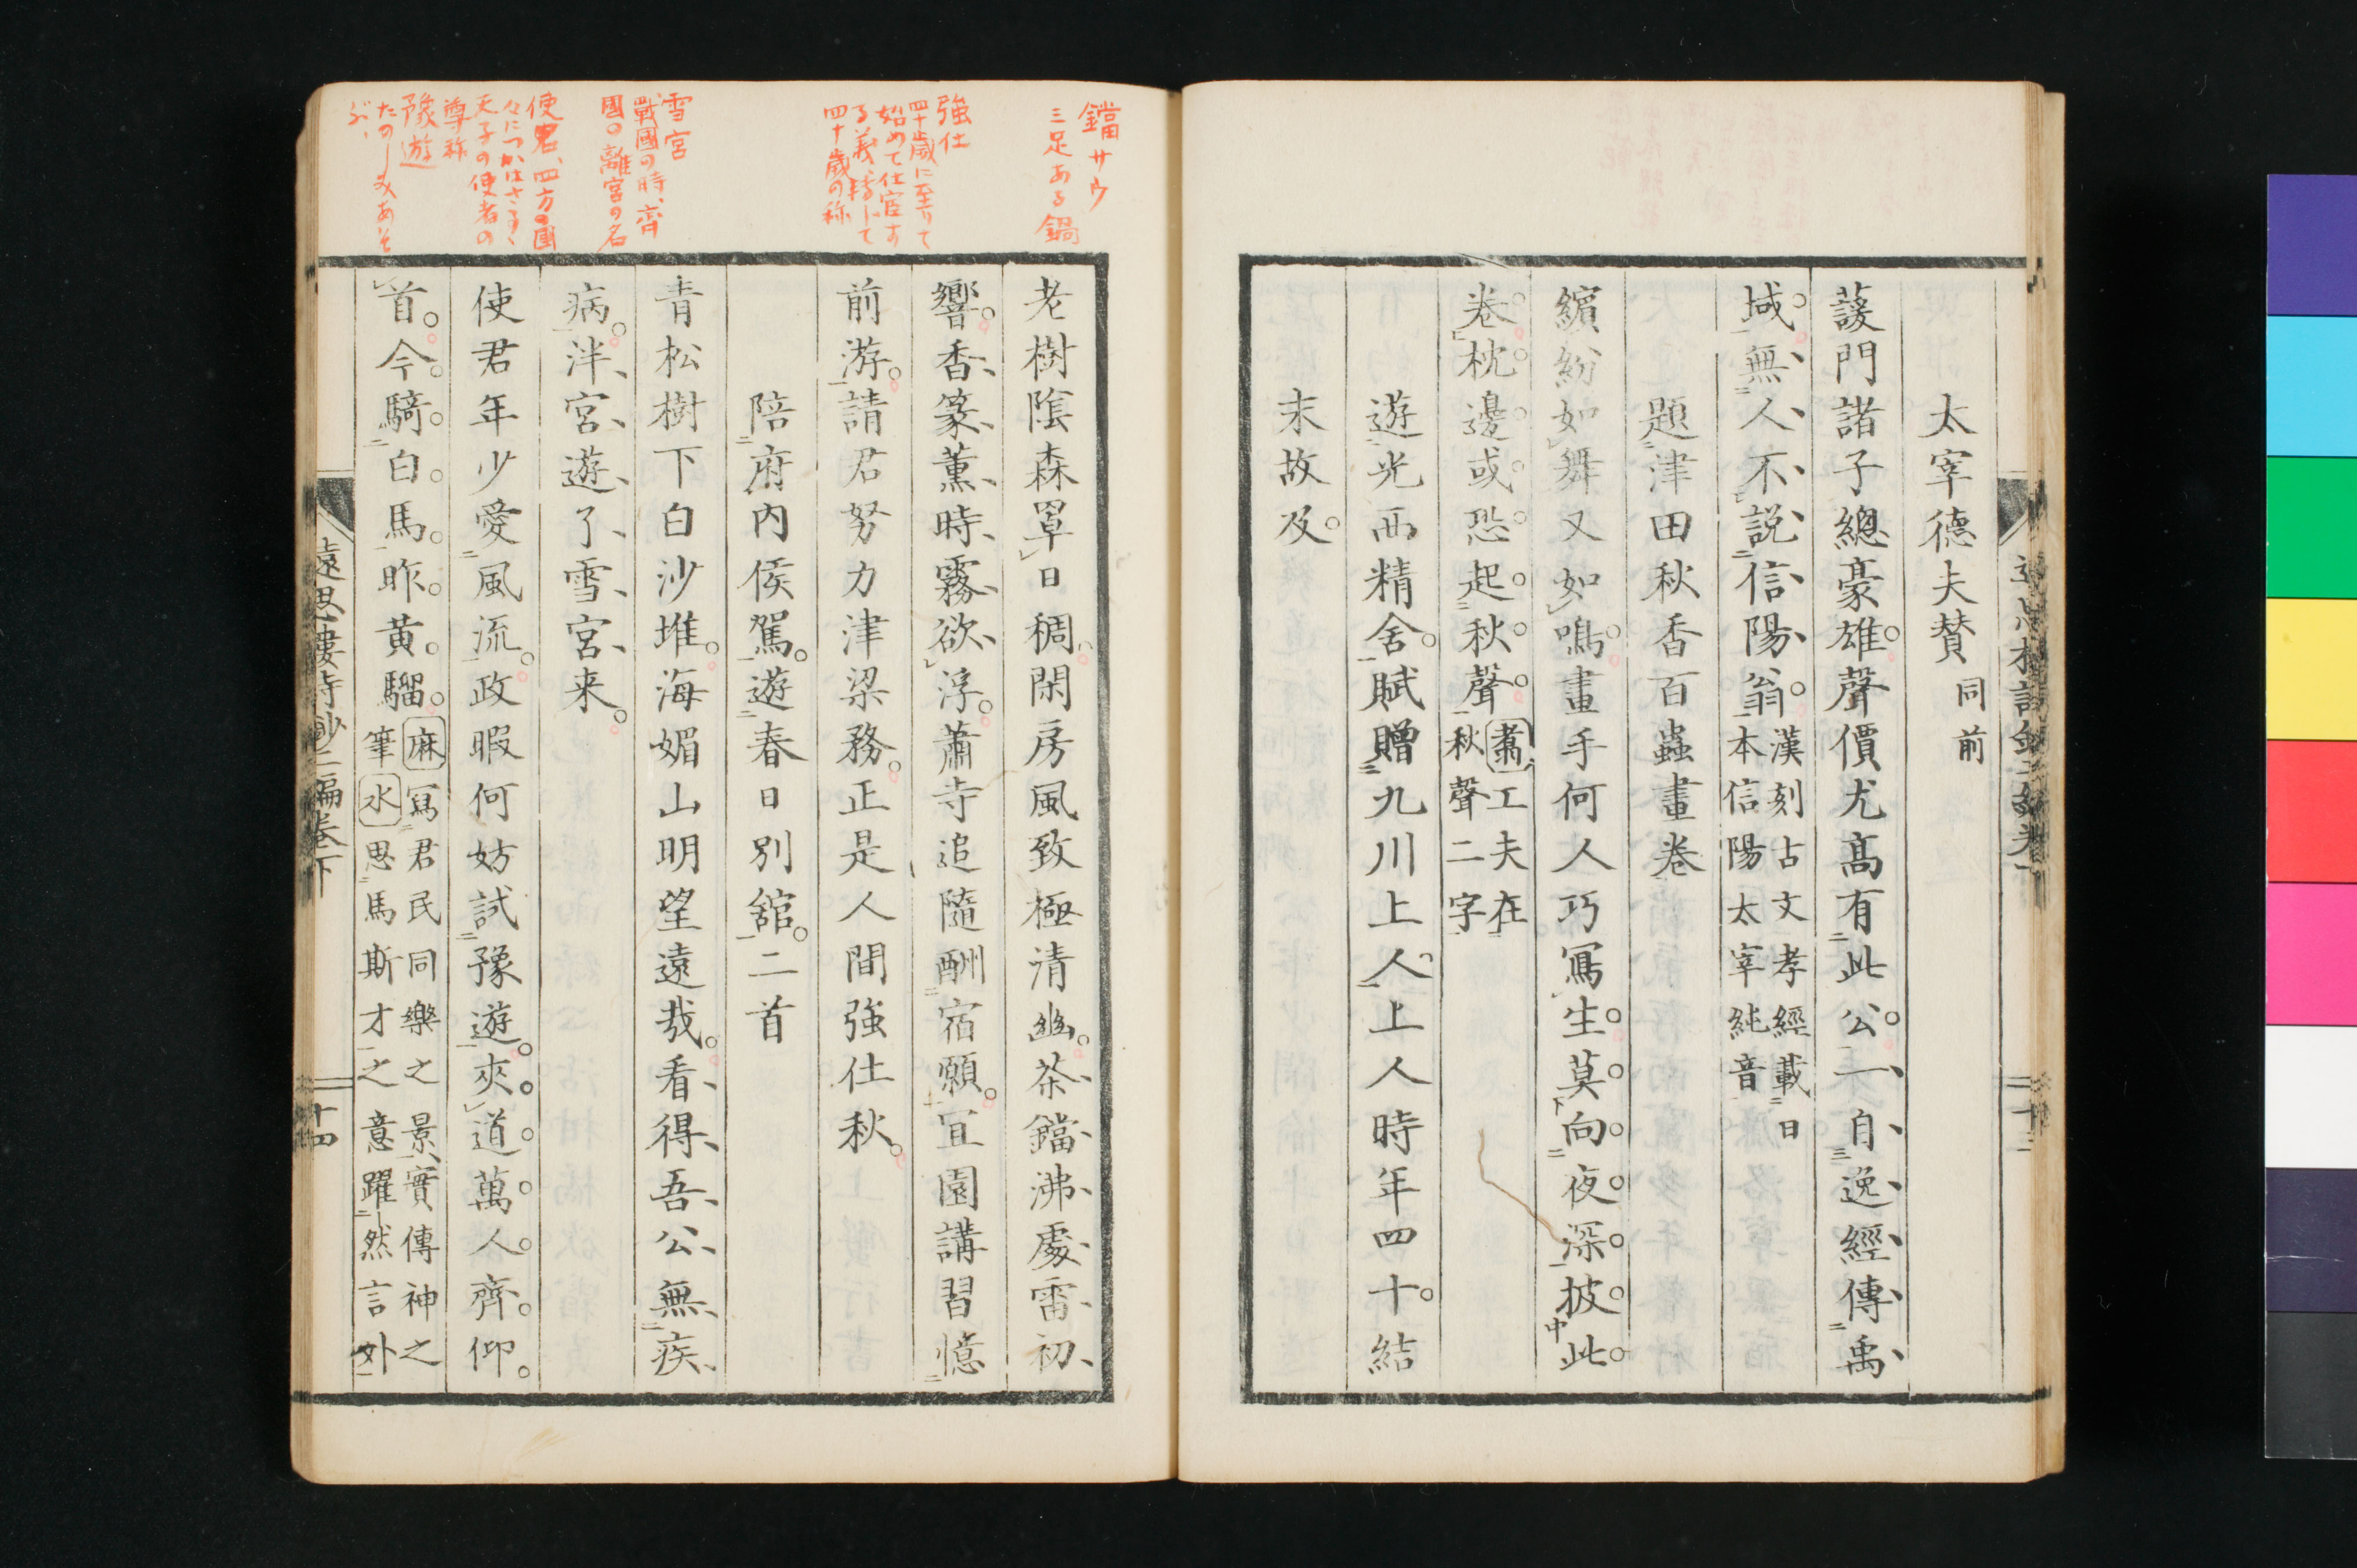 太宰德夫賛 同前
蘐門諸子總豪雄。聲價尤髙有此公。一自逸經傳禹
域。無人不説信陽翁。漢刻古文孝經載曰
本信陽太宰純音
題津田秋香百蟲畫卷
繽紛如舞又如鳴。畫手何人巧冩生。莫向夜深披此
卷。枕邊或恐起秋聲。䎘工夫在
秋聲二字
遊光西精舍。賦贈九川上人。上人時年四十。結
末故及。
十三
老樹陰森罩日稠。閑房風致極清幽。茶鐺沸處雷初
響。香篆薰時霧欲浮。蕭寺追隨酬宿願。宜園講習憶
前游。請君努力津梁務。正是人間強仕秋。
陪府内侯駕。遊春日別舘。二首
青松樹下白沙堆。海媚山明望遠哉。看得吾公無疾
病。泮宮遊了雪宮来。
使君年少愛風流。政暇何妨試豫遊。夾道萬人齊仰
首。今騎白馬。昨黄騮。麻冩君民同樂之景、實傳神之
筆水思馬斯才之意躍然言外
遠思樓詩鈔二編卷下
十四
鐺サウ
三足ある鍋
強仕
四十歳に至りて
始めて仕官す
る義、轉じて
四十歳の称
雪宮
戰國の時、齊
國の離宮の名
使君、四方の國
々につかはさるゝ
天子の使者の
尊称
豫遊
たのしみあそ
ぶ、